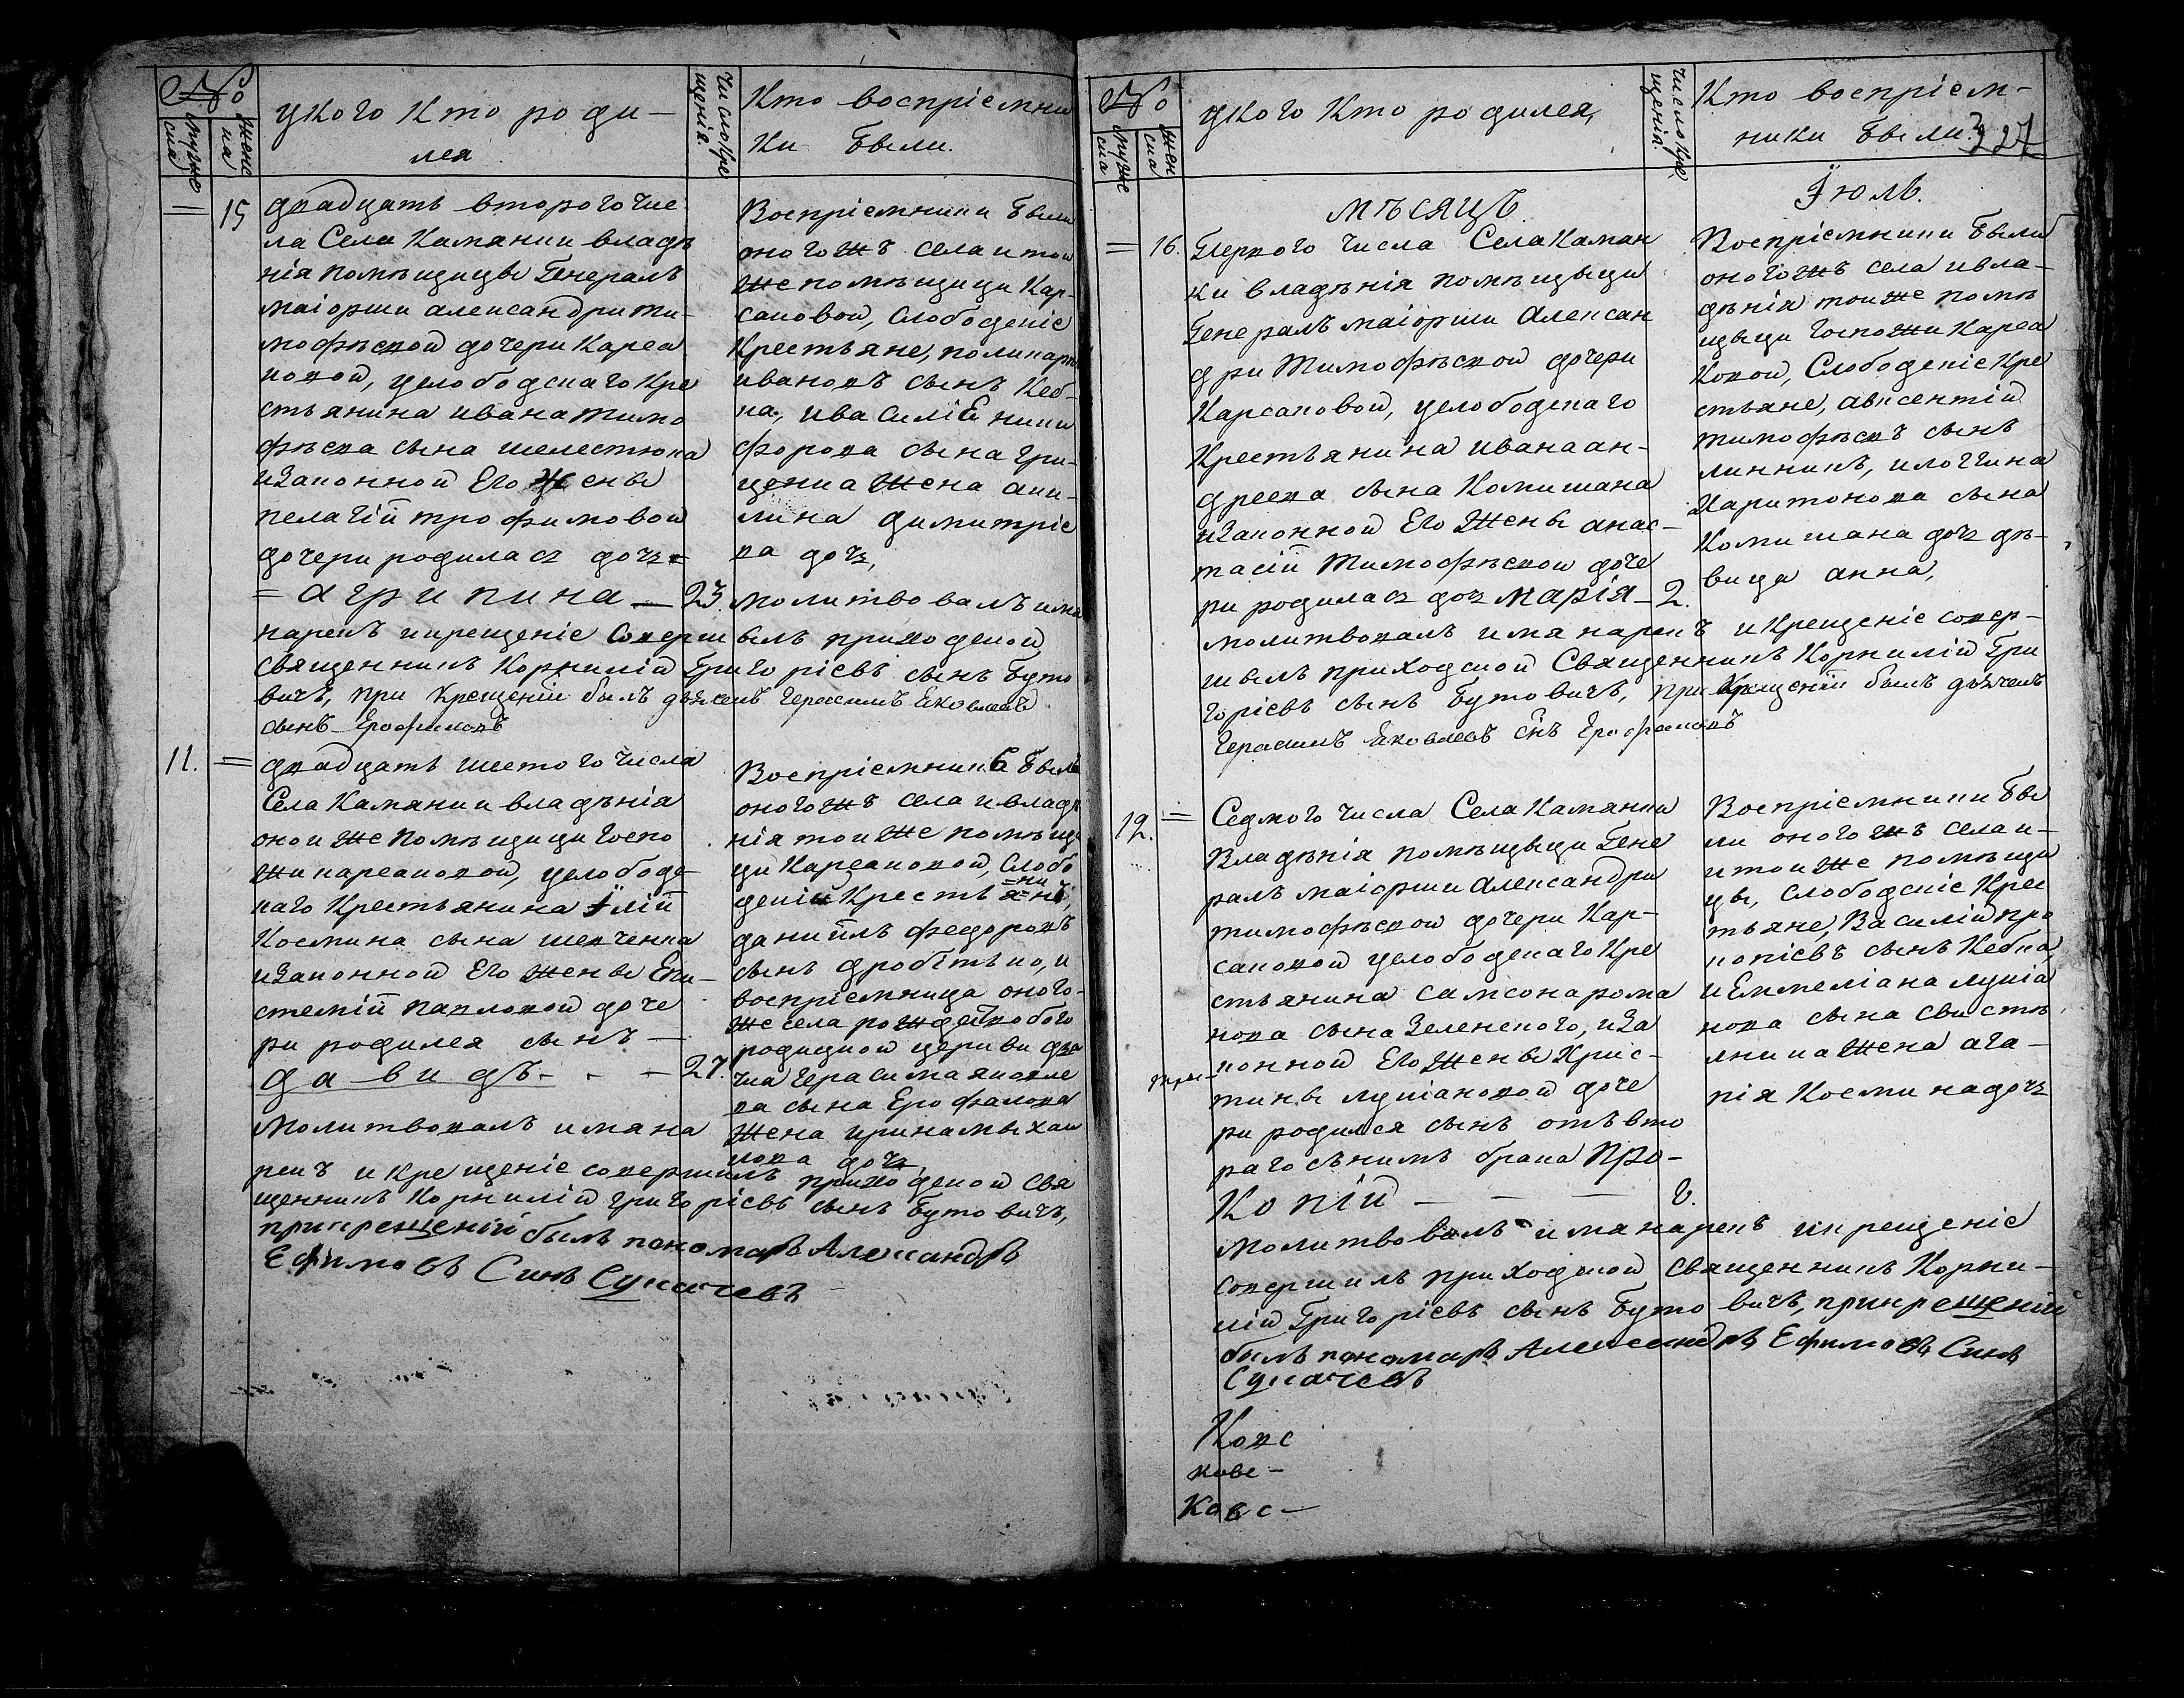 №
мужеска
женска
у кого кто роди-
лся
число крещенія.
Кто воспріемни
ки были.
15
двадцать второго чис
ла Села Камянки владѣ
нія помѣщицы Генералъ
маіорши александри ти-
мофѣевой дочери Карса
ковой, услободскаго Кре
стьянина ивана тимо
фѣева сына шелестюка
изаконной Его жены
пелагіи трофимовой
дочери родилась дочь
= агрипина — 23.
Воспріемники были
оногожъ села и той
же помѣщици Кар-
саковой, Слободскіе
Крестьяне, поликарпъ
ивановъ сынъ Кеб-
ка, ивасилія ники
форова сына гри-
ценка жена аки-
лина димитріе
ва дочь,
молитвовалъ имя
нарекъ икрещеніе соверши вылъ приходской
священникъ Корнилій Григорієвъ сынъ Буто
вичъ, при Крещеніи былъ дьячекъ Герасимъ Яковлевъ
сынъ Ерофаловъ
11.
двадцать шестого числа
Села Камянки владѣнія
оной же помѣщици госпо
жи карсаковой, услободс-
каго Крестьянина Іліи
Космина сына шевченка
изаконной Его жены Епи-
стеміи павловой доче
ри родился сынъ —
давидъ - - — 27.
Воспріемникъ былъ
оногожъ села ивладѣ
нія тои же помѣщи
ци Карсаковой, Слобо
дскій Крестьянинъ,
даніилъ федоровъ
сынъ дробітько, и
воспріемница оного-
же села рождество бого
родицкой церкви дья
чка Герасима яковле
ва сына Ерофалова
жена ирина михаи
лова дочь
Молитвовалъ имя на
рекъ и крещеніе совершилъ приходской свя
щенникъ Корнилій григорієвъ сынъ Бутовичъ,
прикрещеніи былъ пономарь Александръ
Ефимовъ Синъ Сукачевъ
№
мужеска
женска
у кого кто родился,
число крещенія.
Кто воспріем-
ники были?
327
мѣсяцъ
Іюль.
16.
Первого числа Села Камян
ки владѣнія помѣщыци
Генералъ маіорши Алексан
дри Тимофѣевой дочери
Карсаковой, услободскаго
Крестьянина ивана ан-
дреева сына Комишана
изаконной Его жены анас-
тасіи Тимофѣевой доче
ри родилась дочь марія — 2.
Воспріемники были
оногожъ села ивла-
дѣнія тоиже помѣ
щыци госпожи Карса
ковой, Слободскіе Кре
стьяне, авксентій
тимофѣевъ сынъ
линникъ, илоггина
Харитонова сына
Комишана дочь дѣ-
вица анна,
молитвовалъ имя нарекъ и Крещеніе совер-
шилъ приходской Священникъ Корнилій Гри
горієвъ сынъ Бутовичъ, при Крещеніи былъ дьячекъ
Герасимъ Яковлевъ снъ Ерофаловъ
12.
Седмого числа Села Камянки
Владѣнія помѣщыци Гене
ралъ маіорши Александри
тимофѣевой дочери Кар-
саковой услободскаго Кре
стьянина самсона рома
нова сына Зеленского, иза
конной Его Жены Хрис-
тины лукіановой доче
ри родился сынъ отъ вто
раго сънимъ брака Про-
Копій — — — 8.
Воспріемники бы
ли оногожъ села и-
итои же помѣщи
цы, Слободскіе Крес
тьяне, Василій про
копієвъ сынъ Кебка,
и Еммеліана лукіа
нова сына свистѣ
лника жена ага-
пія Космина дочь
молитвовалъ имя нарекъ икрещеніе
совершилъ приходской священникъ Корни-
лій Григорієвъ сынъ Бутовичъ, прикрещеніи
былъ пономарь Александръ Ефимовъ Синъ
Сукачевъ
Ковс
кове-
Ковс-